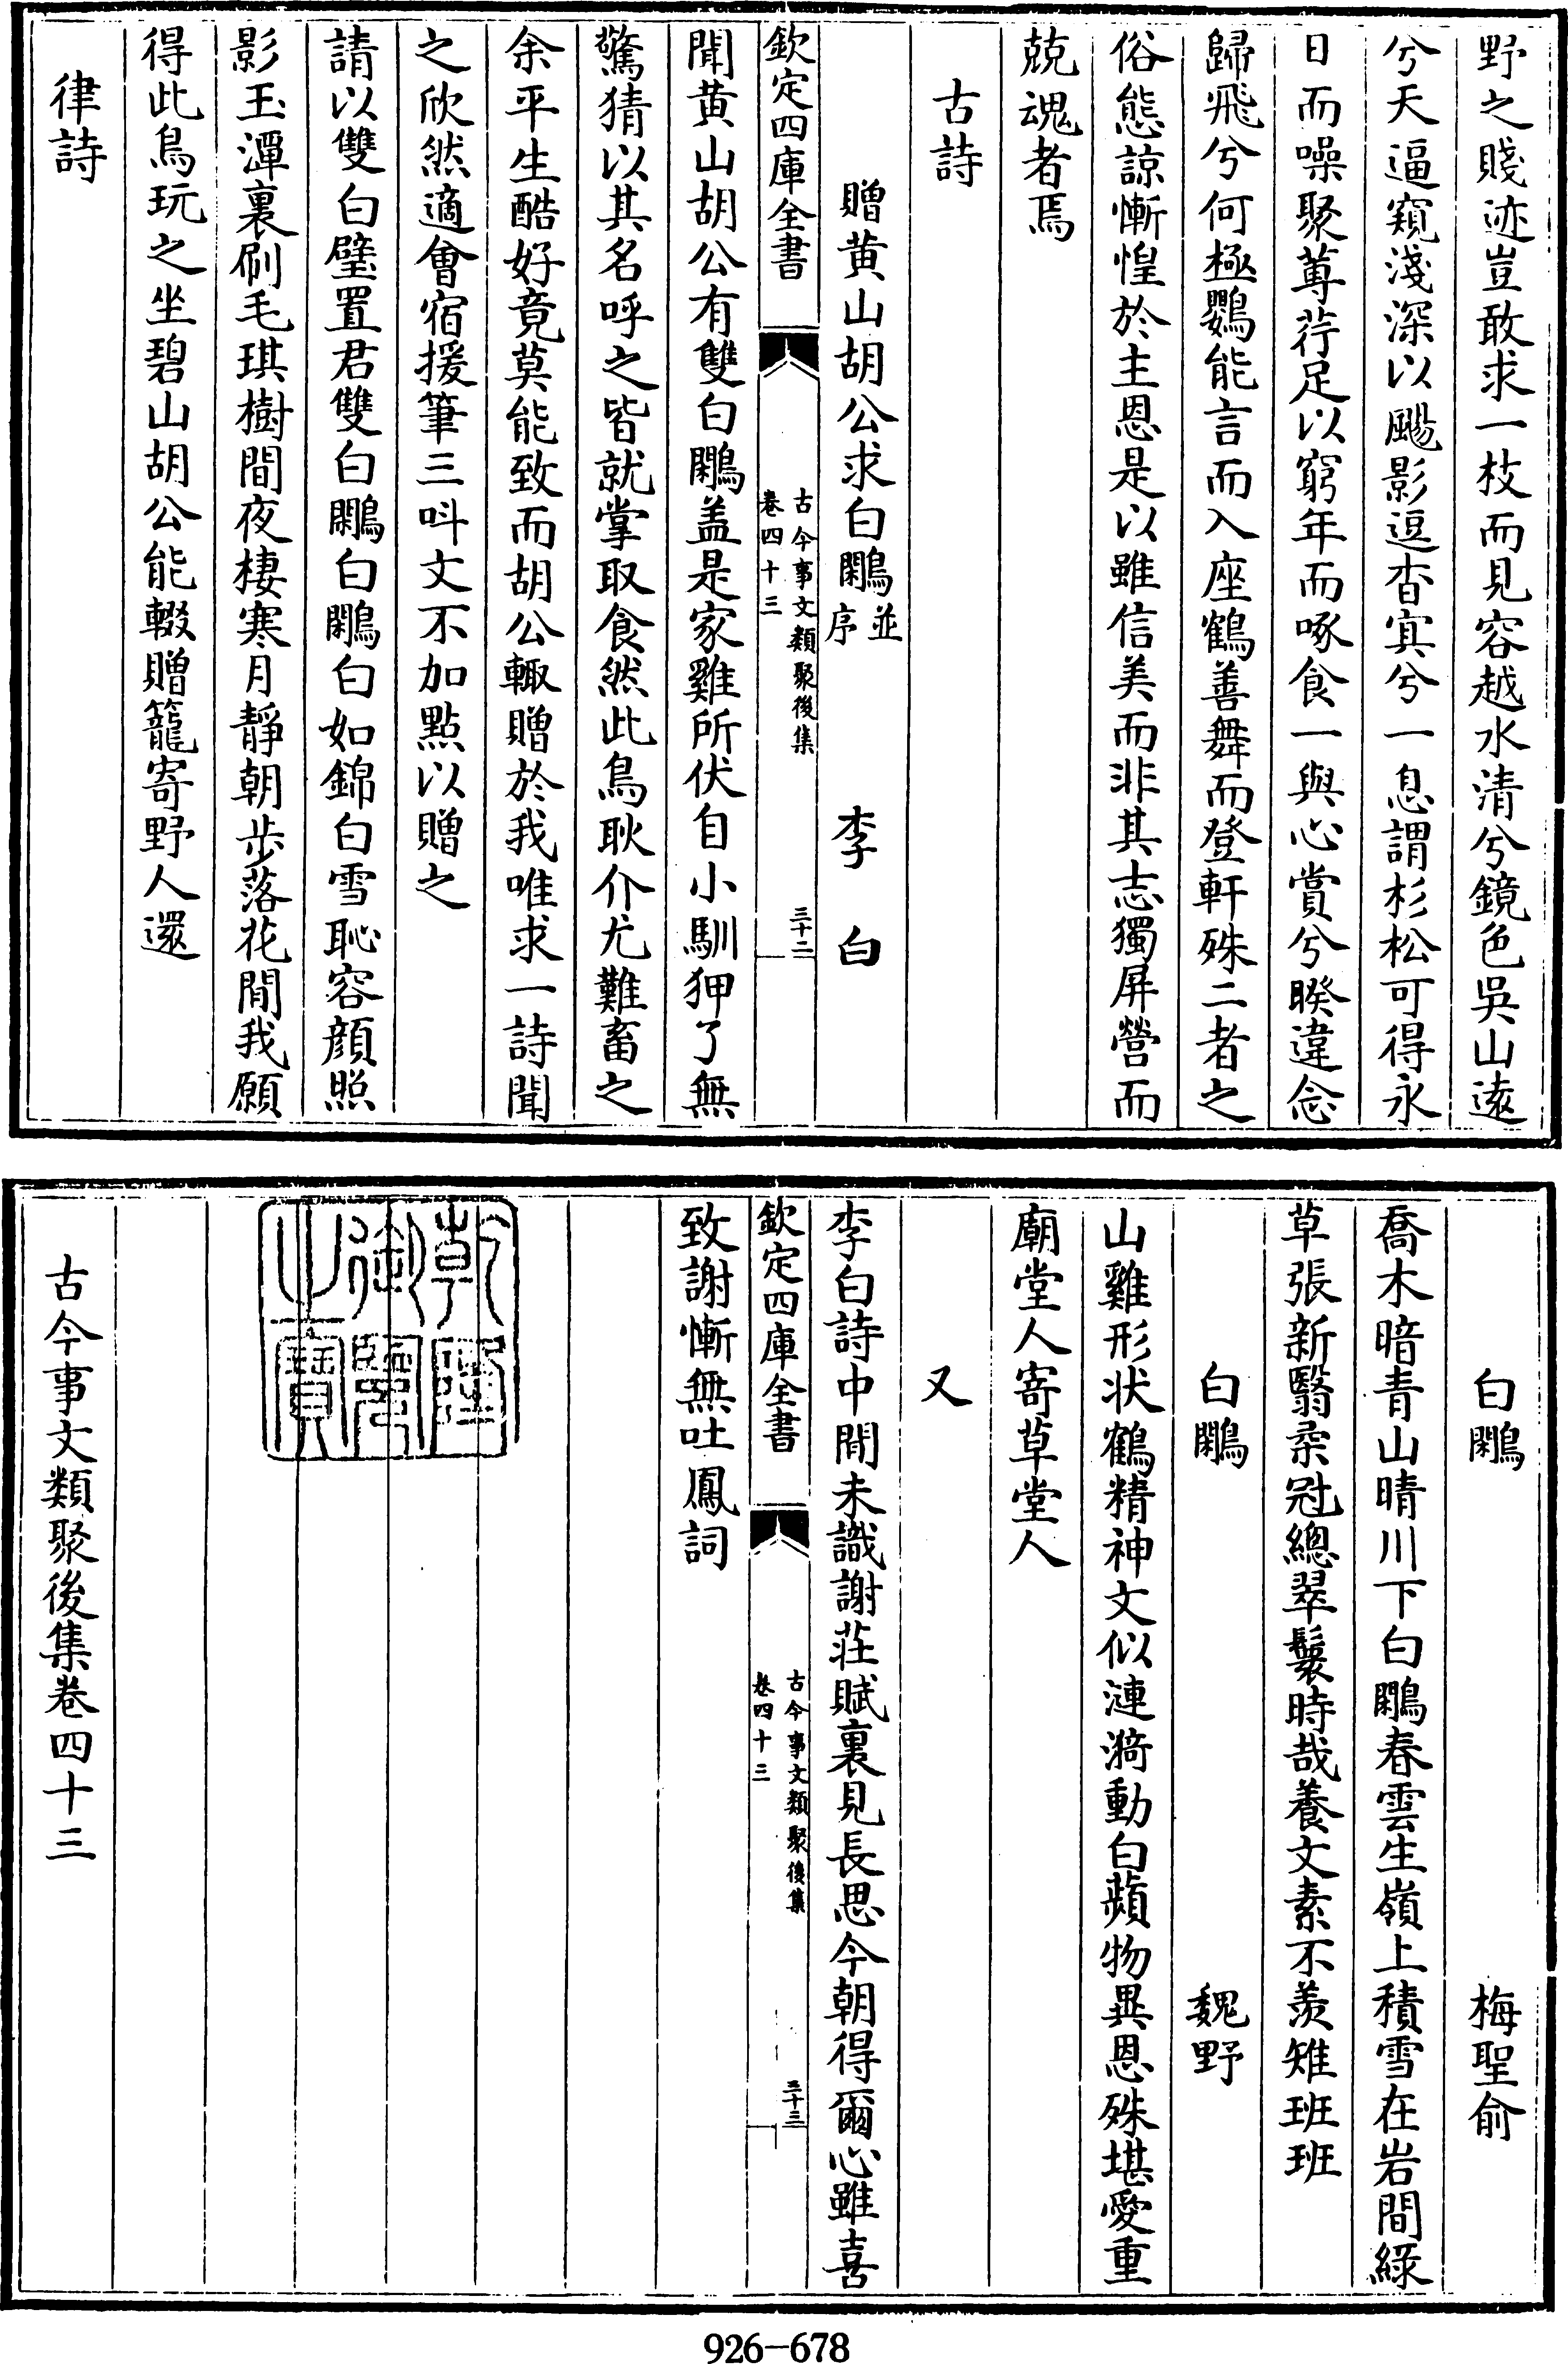 野之賤迹豈敢求一枝而見容越水清兮鏡色吳山遠
兮天逼窺淺深以颺影逗杳㝠兮一息謂杉松可得永
日而噪聚蓴荇足以窮年而啄食一與心賞兮睽違念
歸飛兮何極鸚能言而入座鶴善舞而登軒殊二者之
俗態諒慚惶於主恩是以雖信美而非其志獨屏營而
兢魂者焉
古詩
贈黃山胡公求白鷴並序 李白
欽定四庫全書 古今事文類聚後集 卷四十三 三十二
聞黃山胡公有雙白鷴盖是家雞所伏自小馴狎了無
驚猜以其名呼之皆就掌取食然此鳥耿介尤難畜之
余平生酷好竟莫能致而胡公輙贈於我唯求一詩聞
之欣然適會宿援筆三呌文不加點以贈之
請以雙白璧置君雙白鷴白鷴白如錦白雪恥容顔照
影玉潭裏刷毛琪樹間夜棲寒月靜朝步落花間我願
得此鳥玩之坐碧山胡公能輟贈籠寄野人還
律詩
白鷴 梅聖俞
喬木暗青山晴川下白鷴春雲生嶺上積雪在岩間綠
草張新翳柔冠總翠鬟時哉養文素不羨雉班班
白鷴 魏野
山雞形状鶴精神文似漣漪動白蘋物異恩殊堪愛重
廟堂人寄草堂人
又
李白詩中間未識謝莊賦裏見長思今朝得爾心雖喜
致謝慚無吐鳳詞
欽定四庫全書 古今事文類聚後集 卷四十三 三十三
乾隆御覽之寶
古今事文類聚後集卷四十三
926-678